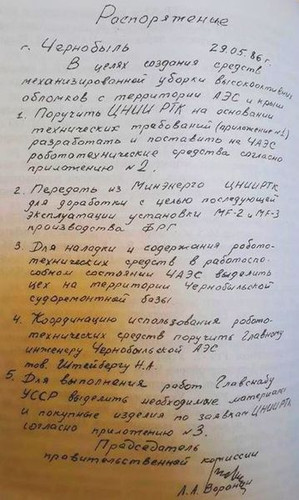 Распоряжение
г. Чернобыль 29.05.86г.
В целях создания средств
механизированной уборки высокоактивных
обломков с территории АЭС и крыш
1. Поручить ЦНИИ РТК на основании
технических требований (приложение №1)
разработать и поставить на ЧАЭС
робототехнические средства согласно
приложению №2.
2. Передать из Минэнерго ЦНИИРТК
для доработки с целью последующей
эксплуатации установки MF-2 и MF-3
производства ФРГ
3. Для наладки и содержания робото-
технических средств в работоспо-
собном состоянии ЧАЭС выделить
цех на территории Чернобыльской
судоремонтной базы
4. Координацию использования робото-
технических средств поручить Главному
инженеру Чернобольской АЭС
тов. Штейнбергу Н.А.
5. Для выполнения работ Главснабу
УССР выделить необходимые материалы
и покупные изделия по заявкам ЦНИИРТК
согласно приложению №3.
Председатель
правительственной комиссии
Л.А. Воронин